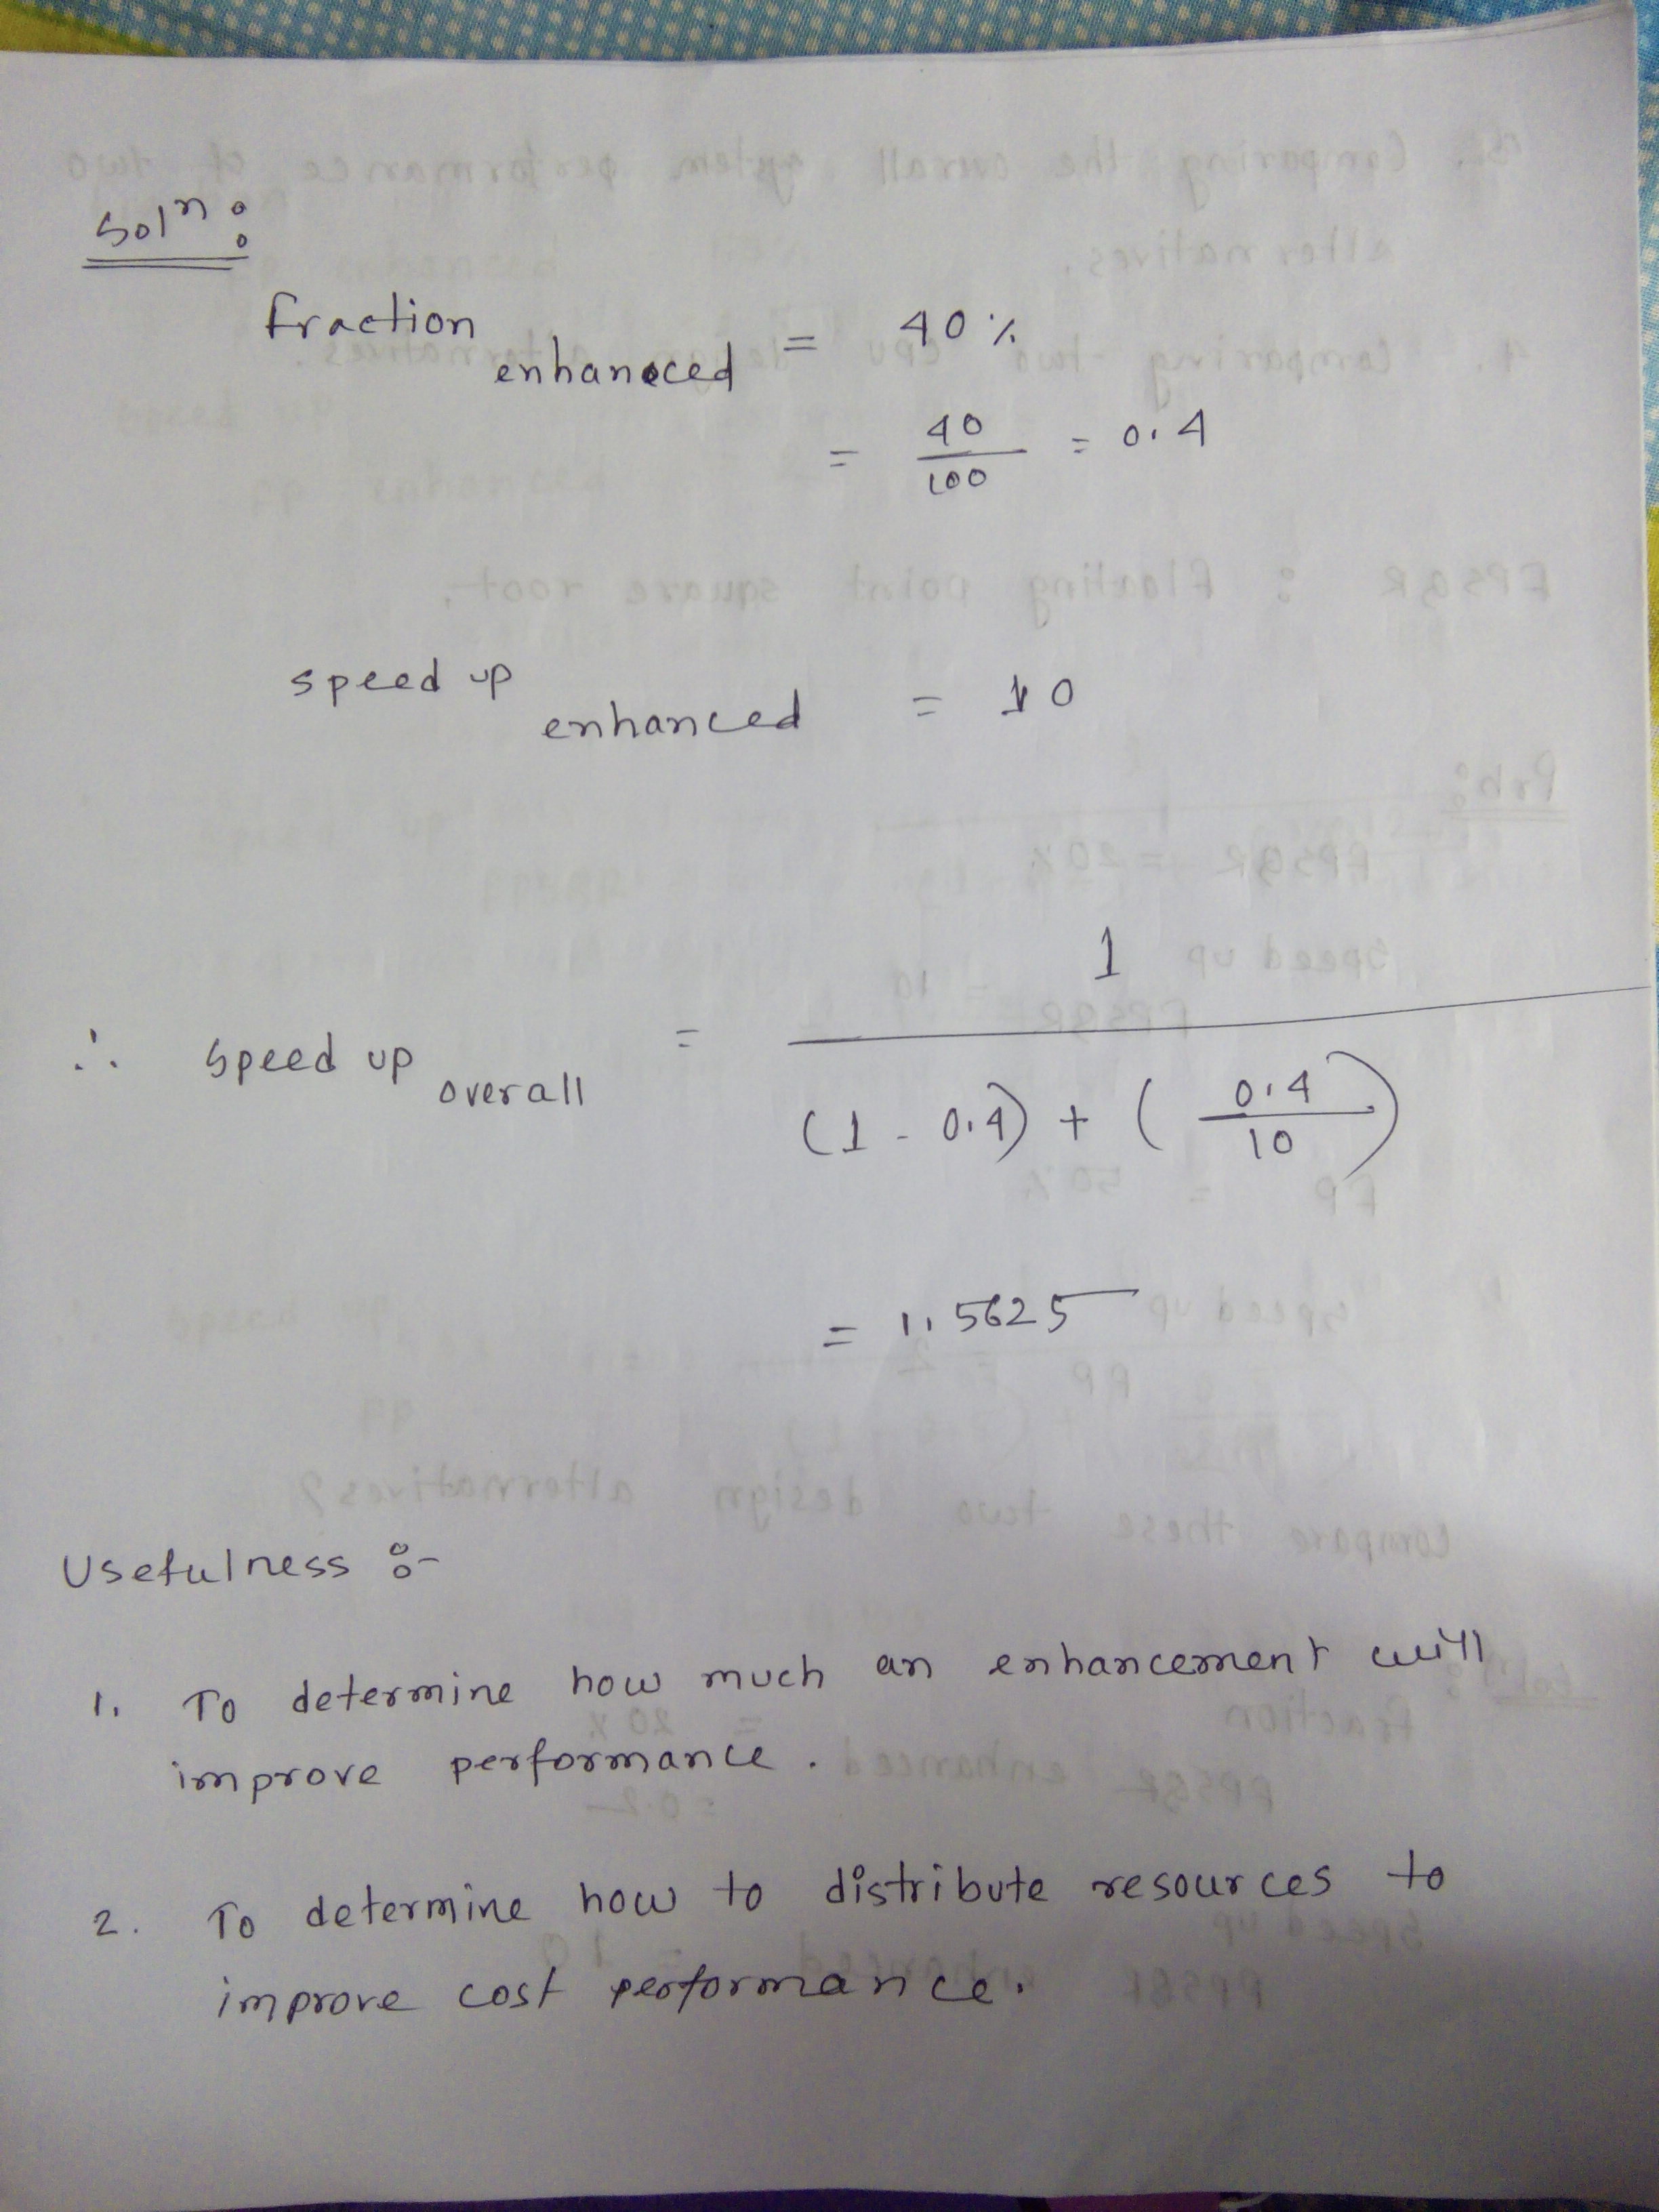 Solⁿ:
fraction enhanced = 40%
= 40/100 = 0.4
speed up enhanced = 10
∴ speed up overall = 1 / (1 - 0.4) + (0.4/10)
= 1.5625
Usefulness :-
1. To determine how much an enhancement will
improve performance.
2. To determine how to distribute resources to
improve cost performance.